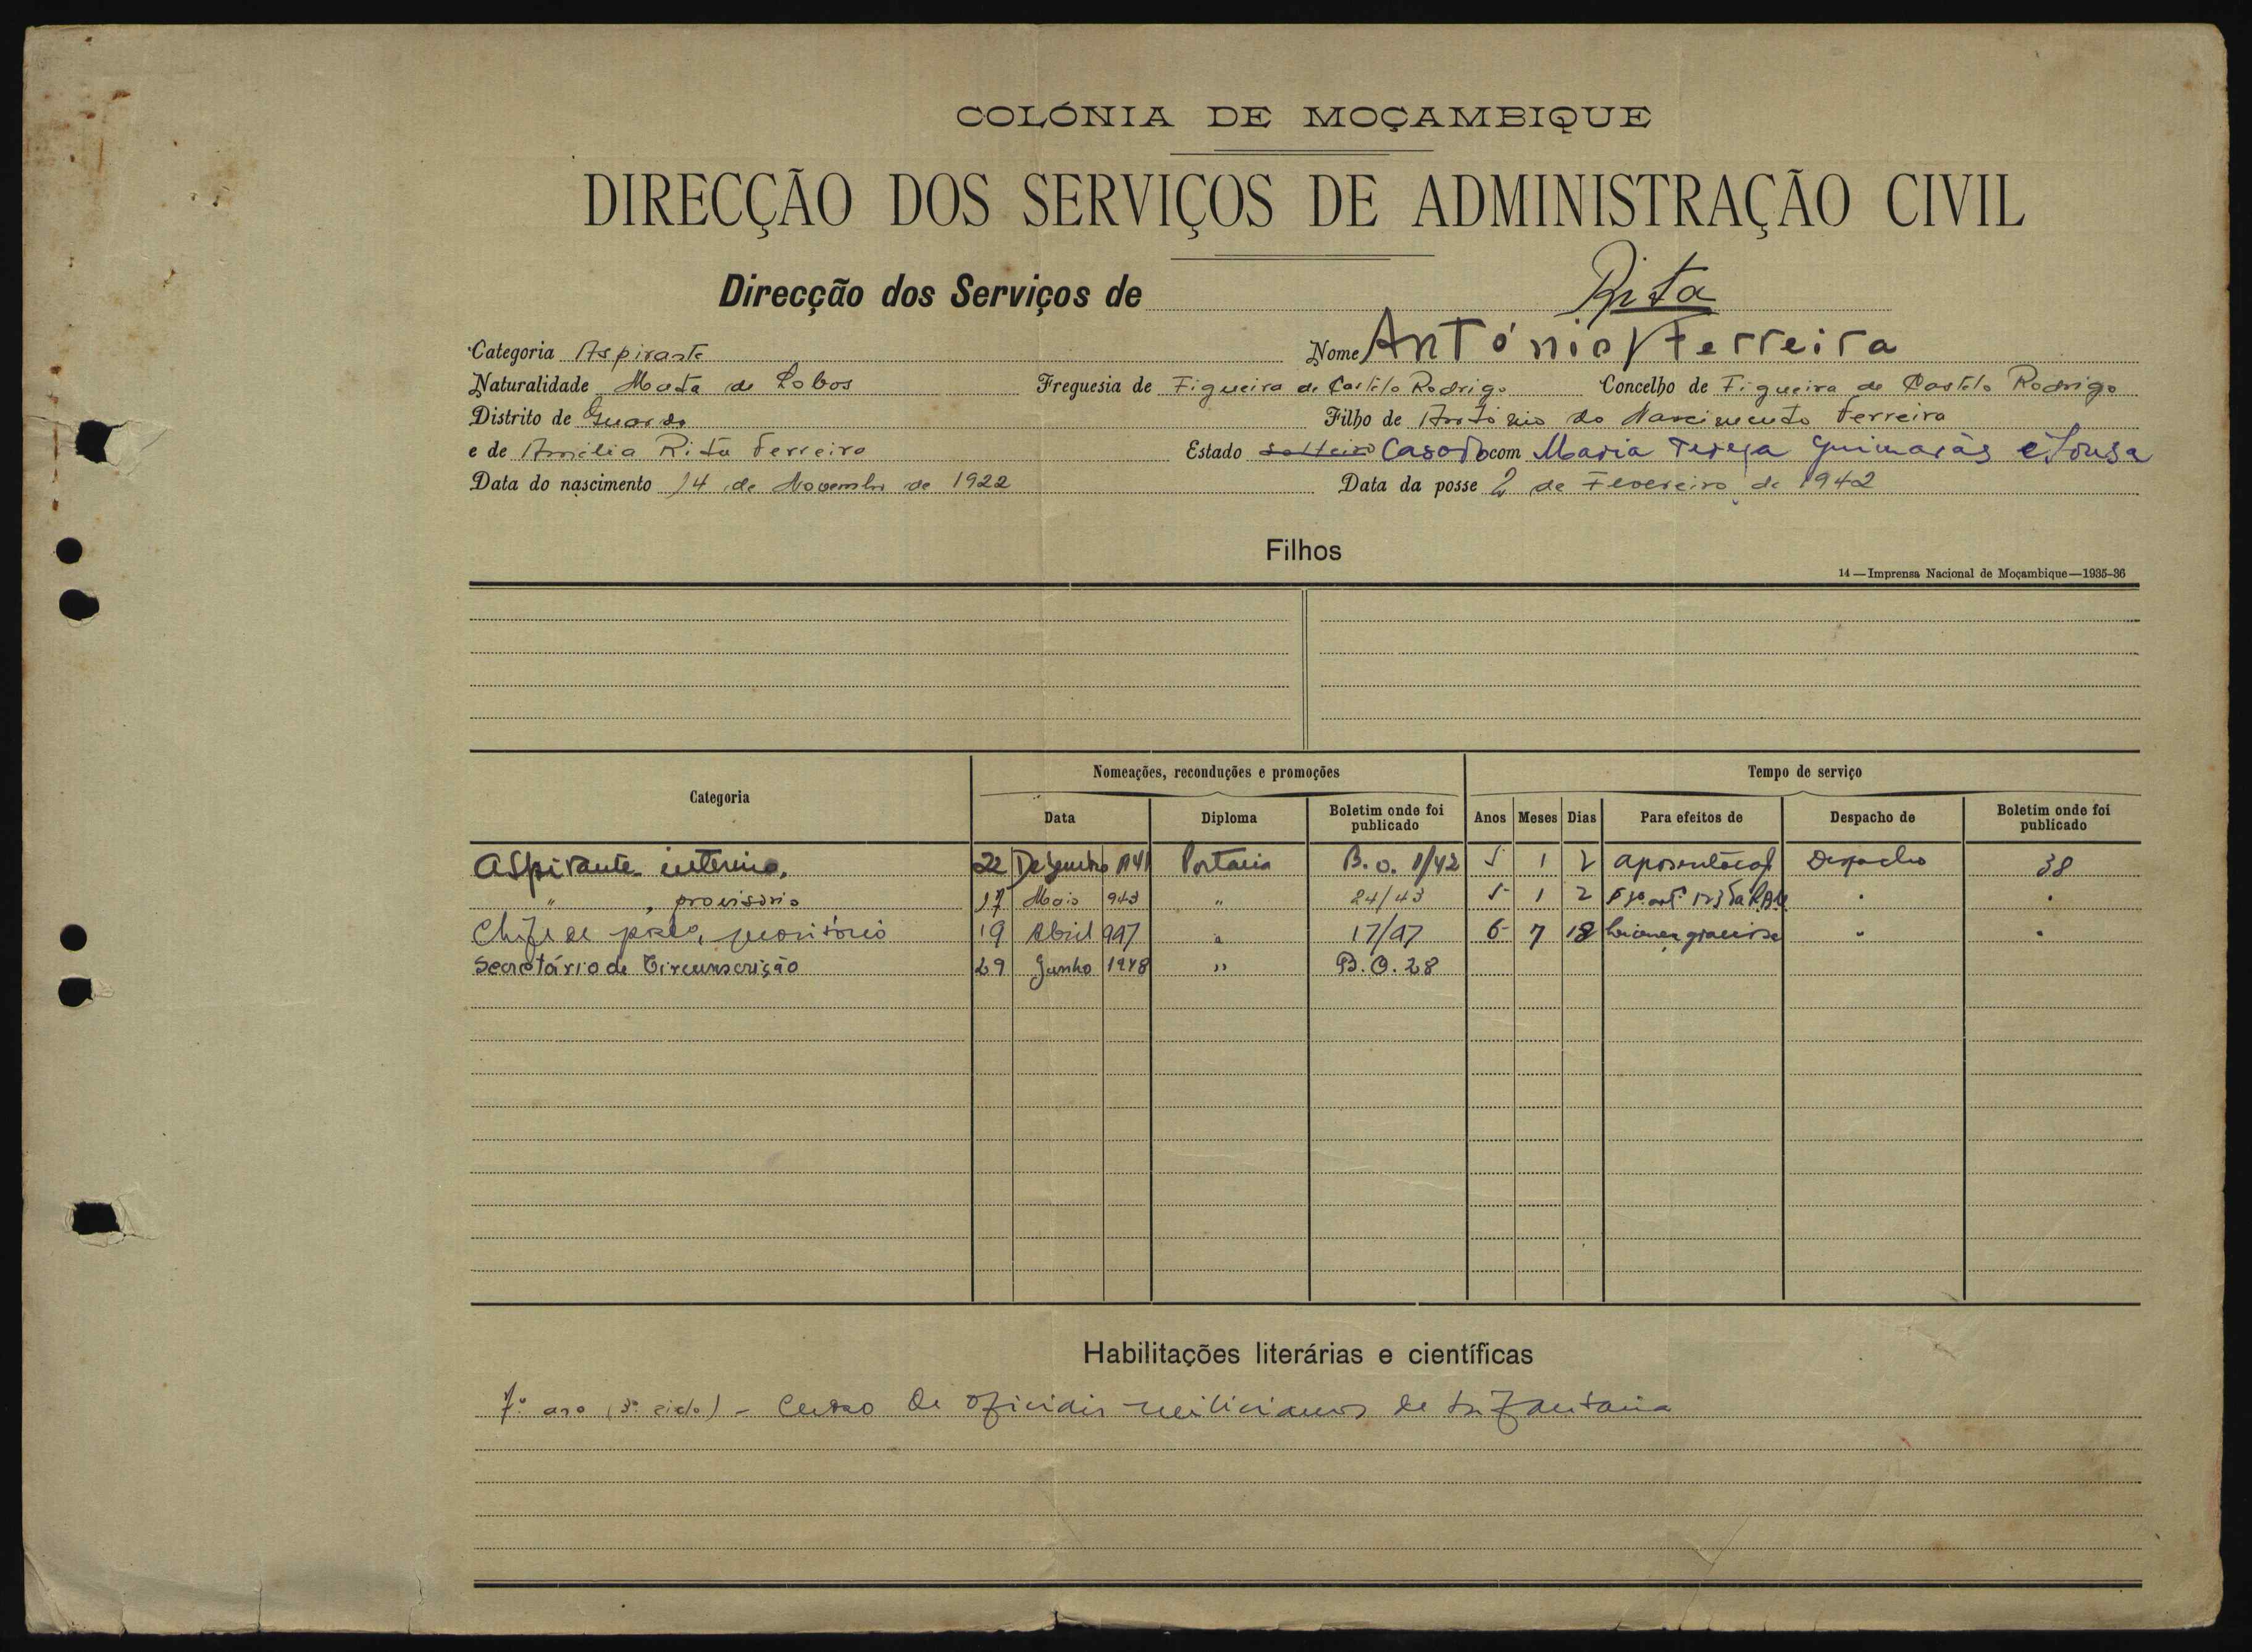 COLÓNIA DE MOÇAMBIQUE
DIRECÇÃO DOS SERVIÇOS DE ADMINISTRAÇÃO CIVIL
Direcção dos Serviços de
Rita
Categoria Aspirante Nome António / Ferreira
Naturalidade Mata de Lobos Freguesia de Figueira de Castelo Rodrigo Concelho de Figueira de Castelo Rodrigo
Distrito de Guarda Filho de António do Nascimento Ferreira
e de Amélia Rita Ferreira Estado solteiro Casado com Maria Teresa Guimarãs e Sousa
Data do nascimento 14 de Novembro de 1922 Data da posse 2 de Fevereiro de 1942
Filhos
14—Imprensa Nacional de Moçambique—1935-36
Categoria Nomeações, reconduções e promoções Tempo de serviço
Data Diploma Boletim onde foi publicado Anos Meses Dias Para efeitos de Despacho de Boletim onde foi publicado
Aspirante interino, 22 Dezembro 1941 Portaria B.O. 1/42 5 1 2 aposentação Despacho 38
" , provisório 17 Maio 943 " 24/43 5 1 2
Chefe de posto, provisório 19 Abril 947 " 17/47 6 7 18 licença graciosa " "
Secretário de Circunscrição 29 Junho 1948 " B.O. 28
Habilitações literárias e científicas
7.º ano (3.º ciclo) - Curso de oficiais milicianos de Infantaria